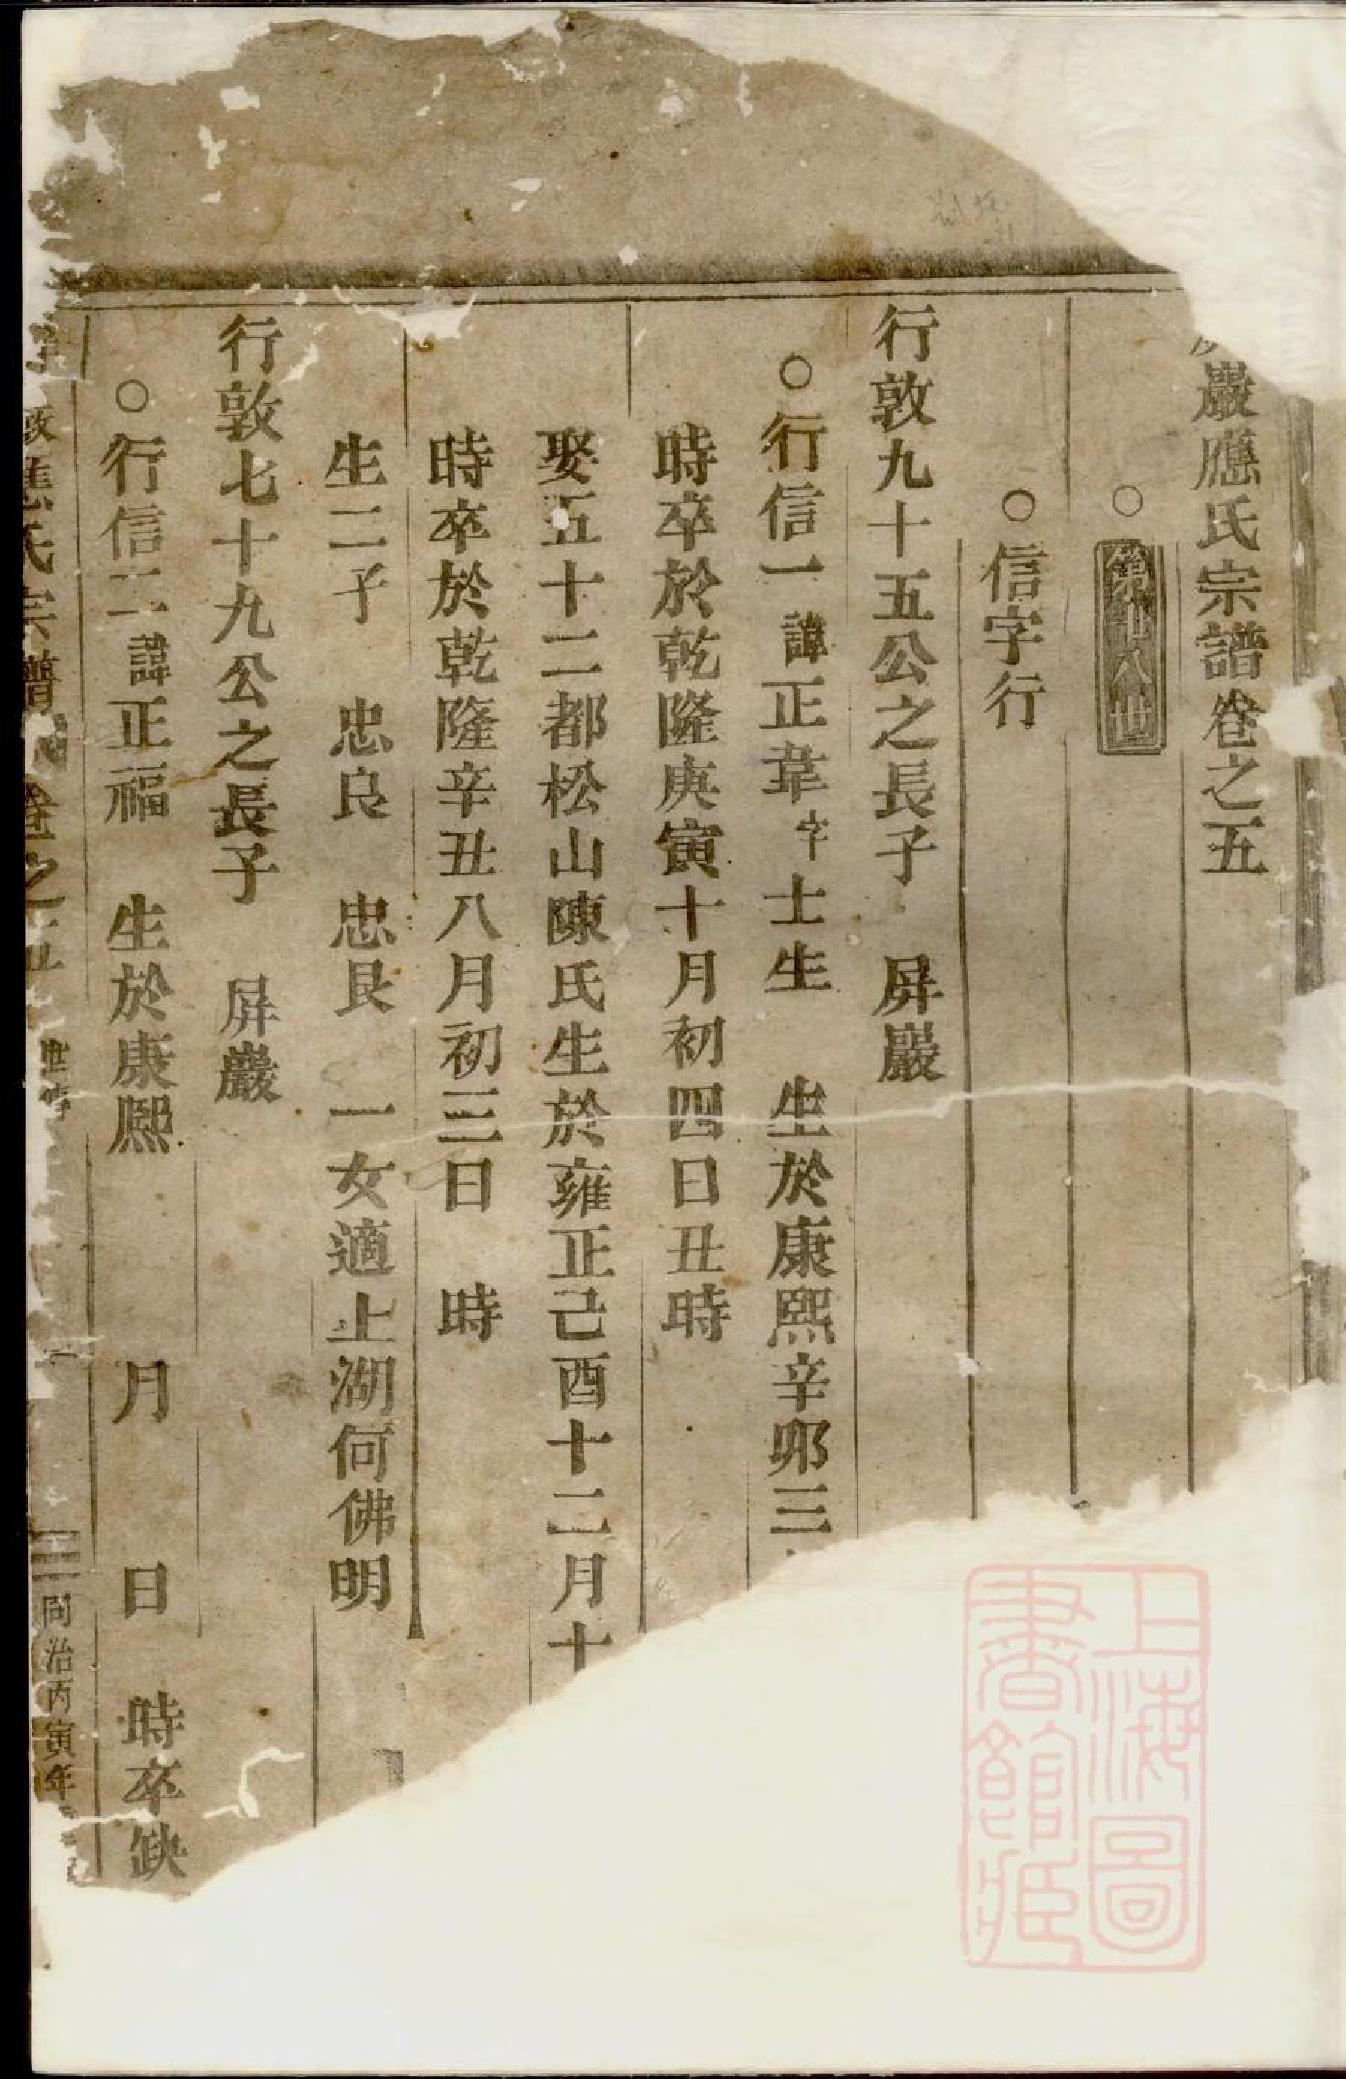 巖應氏宗譜卷之五
○第廿八世
○信字行
行敦九十五公之長子 屏巖
○行信一諱正韋字士生 生於康熙辛卯三
時卒於乾隆庚寅十月初四日丑時
娶五十二都松山陳氏生於雍正己酉十二月十
時卒於乾隆辛丑八月初三日 時
生二子 忠良 忠艮 一女適上湖何佛明
行敦七十九公之長子 屏巖
○行信二諱正福 生於康熙 月 日 時卒缺
應氏宗譜 卷之五
同治丙寅年
上海圖書館藏